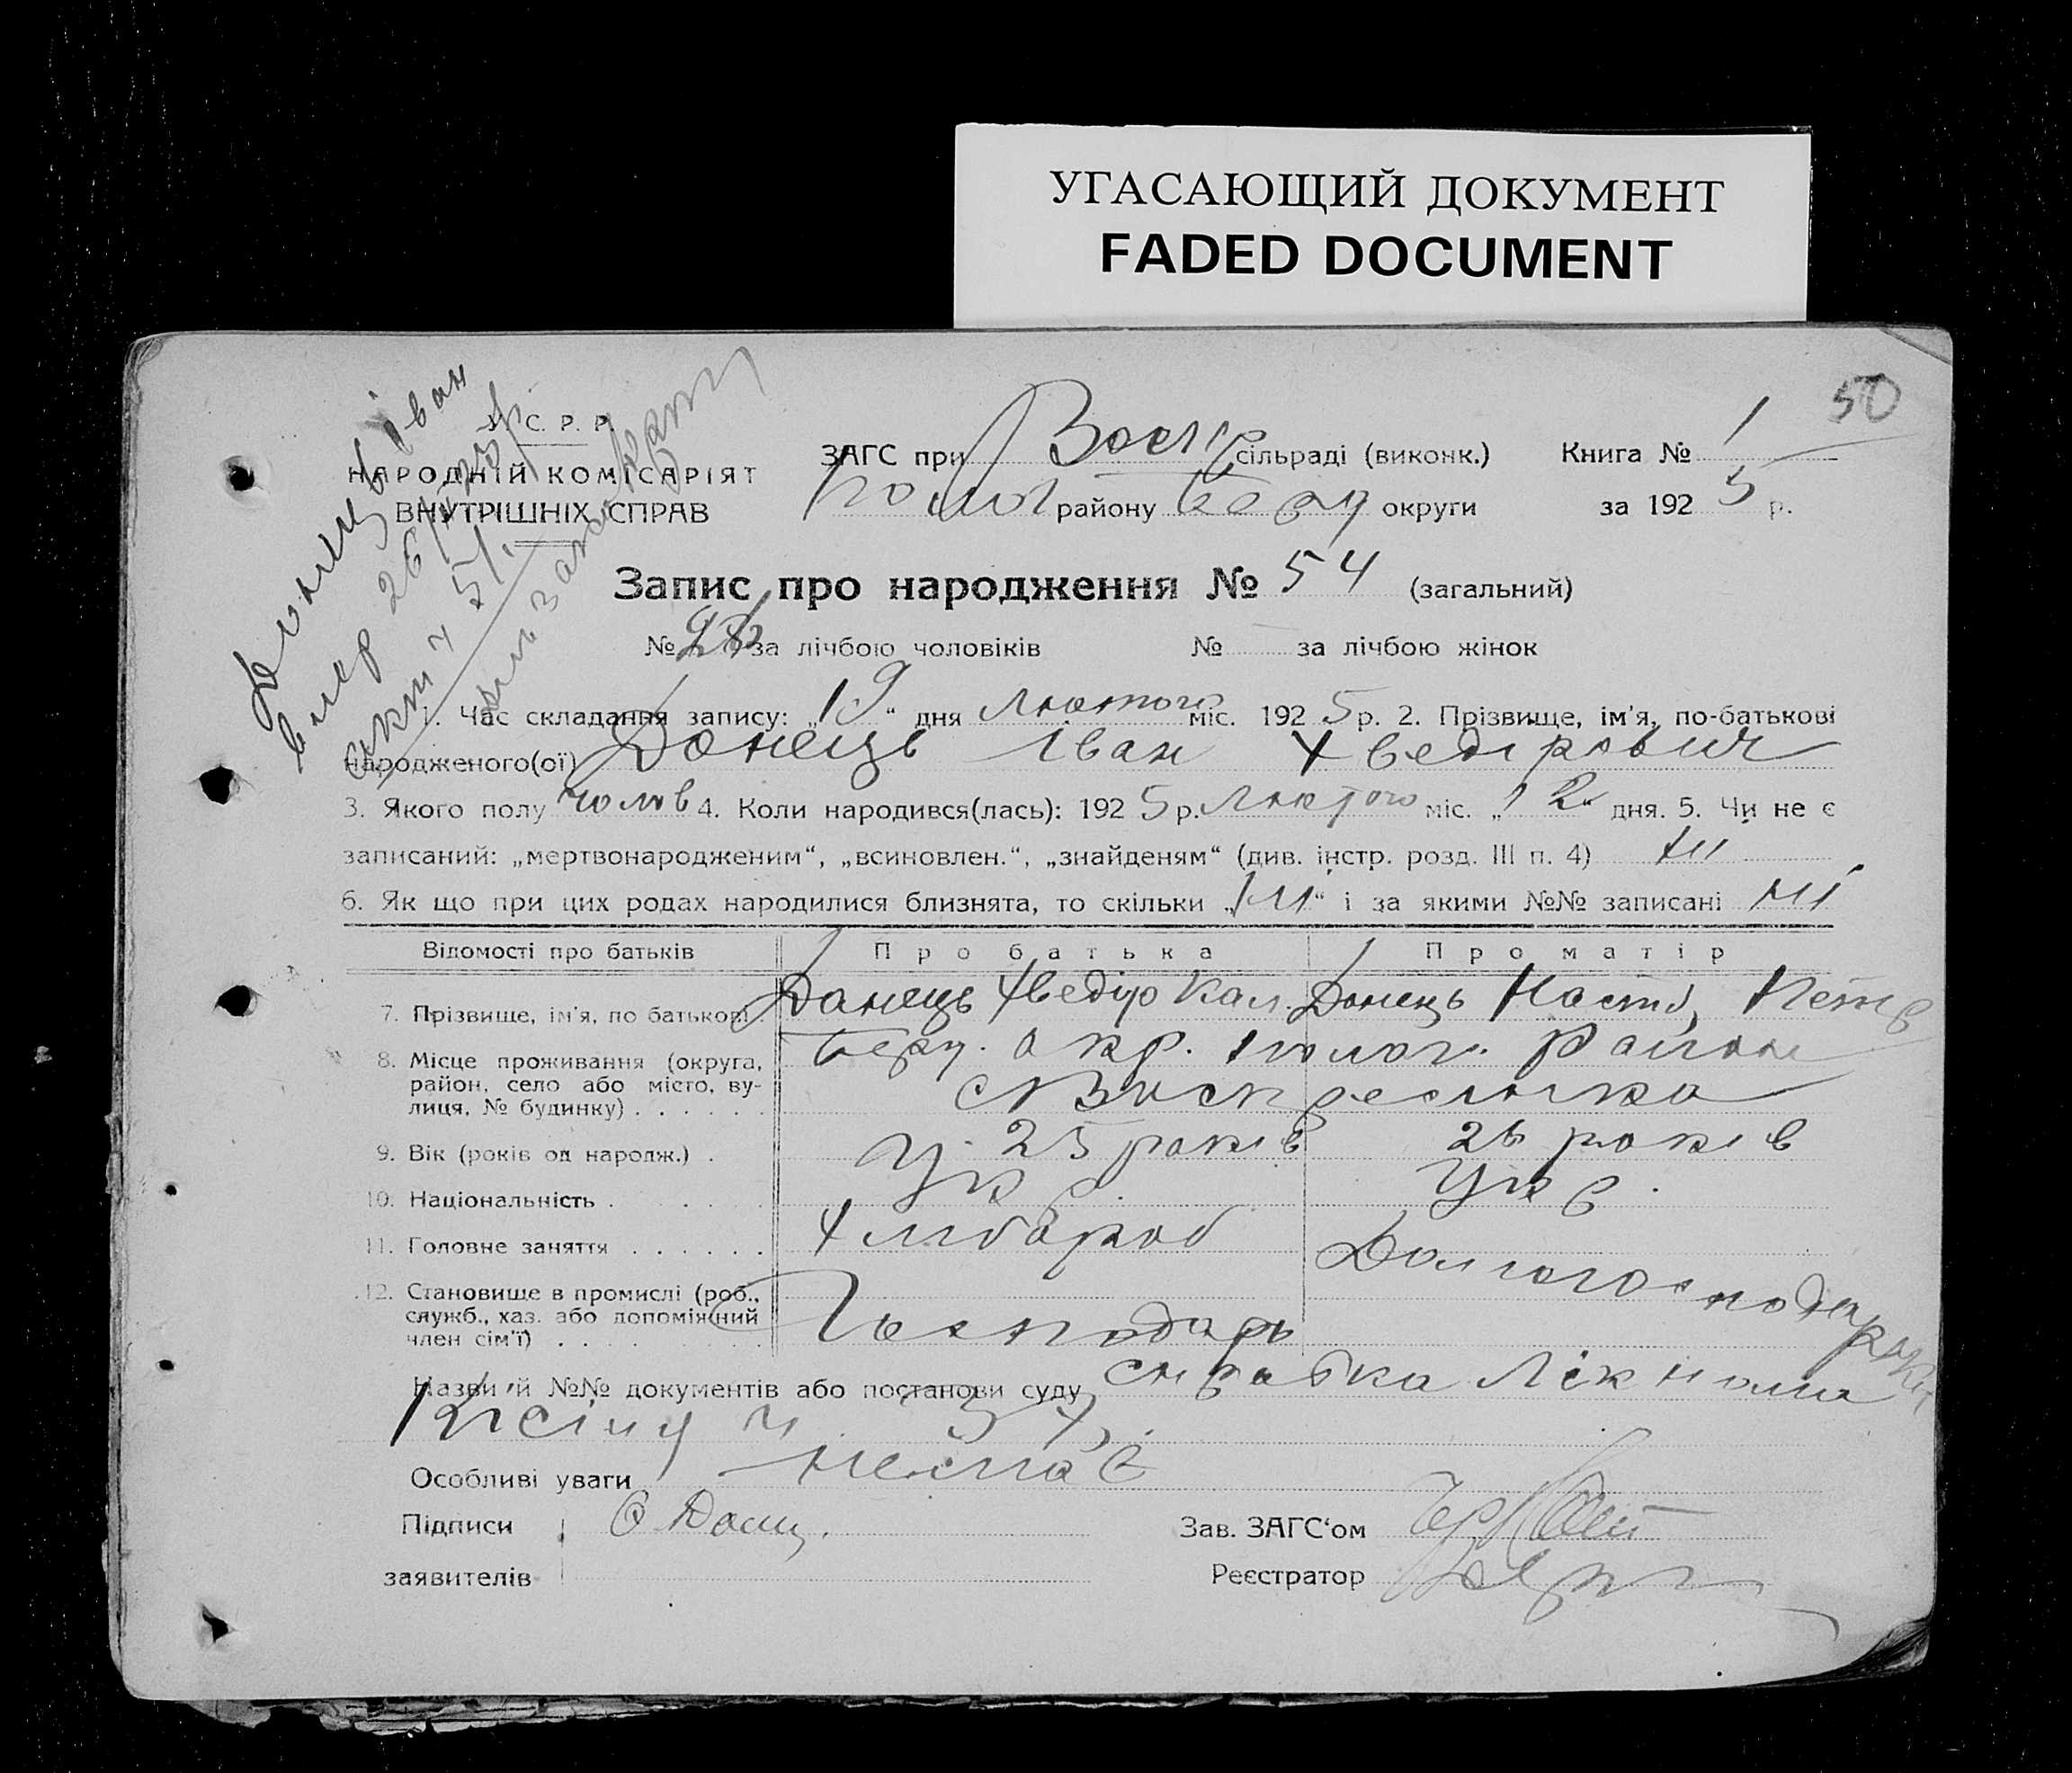 УГАСАЮЩИЙ ДОКУМЕНТ
FADED DOCUMENT
50
Донець Іван
вмер 26
акт ч 5
У. С. Р. Р.
НАРОДНІЙ КОМІСАРІЯТ
ВНУТРІШНІХ СПРАВ
ЗАГС при Воскр сільраді (виконк.) Книга № 1
Полог району Берд округи за 1925 р.
Запис про народження № 54 (загальний)
№ за лічбою чоловіків № за лічбою жінок
1. Час складання запису: „19“ дня Лютого міс. 1925 р. 2. Прізвище, ім'я, по-батькові
народженого(ої) Донець Іван Хведірович
3. Якого полу чолов 4. Коли народився(лась): 1925 р. Лютого міс. „12“ дня. 5. Чи не є
записаний: „мертвонародженим“, „всиновлен.“, „знайденям“ (див. інстр. розд. III п. 4) ні
6. Як що при цих родах народилися близнята, то скільки „ні“ і за якими №№ записані ні
Відомості про батьків Про батька Про матір
7. Прізвище, ім'я, по батькові. Донець Хведір Кал. Донець Настя Петр
8. Місце проживання (округа, район, село або місто, вулиця, № будинку) Берд. окр. Полог. Район
с Воскресенка
9. Вік (років од народж.) 25 років 26 років
10. Національність Укр. Укр.
11. Головне заняття Хлібороб Домогосподарка
12. Становище в промислі (роб., служб., хаз. або допоміжний член сім'ї) Господарь
Назви й №№ документів або постанови суду справка Лікпома
ч 54
Особливі уваги немає
Підписи заявителів
Зав. ЗАГС‘ом
Реєстратор